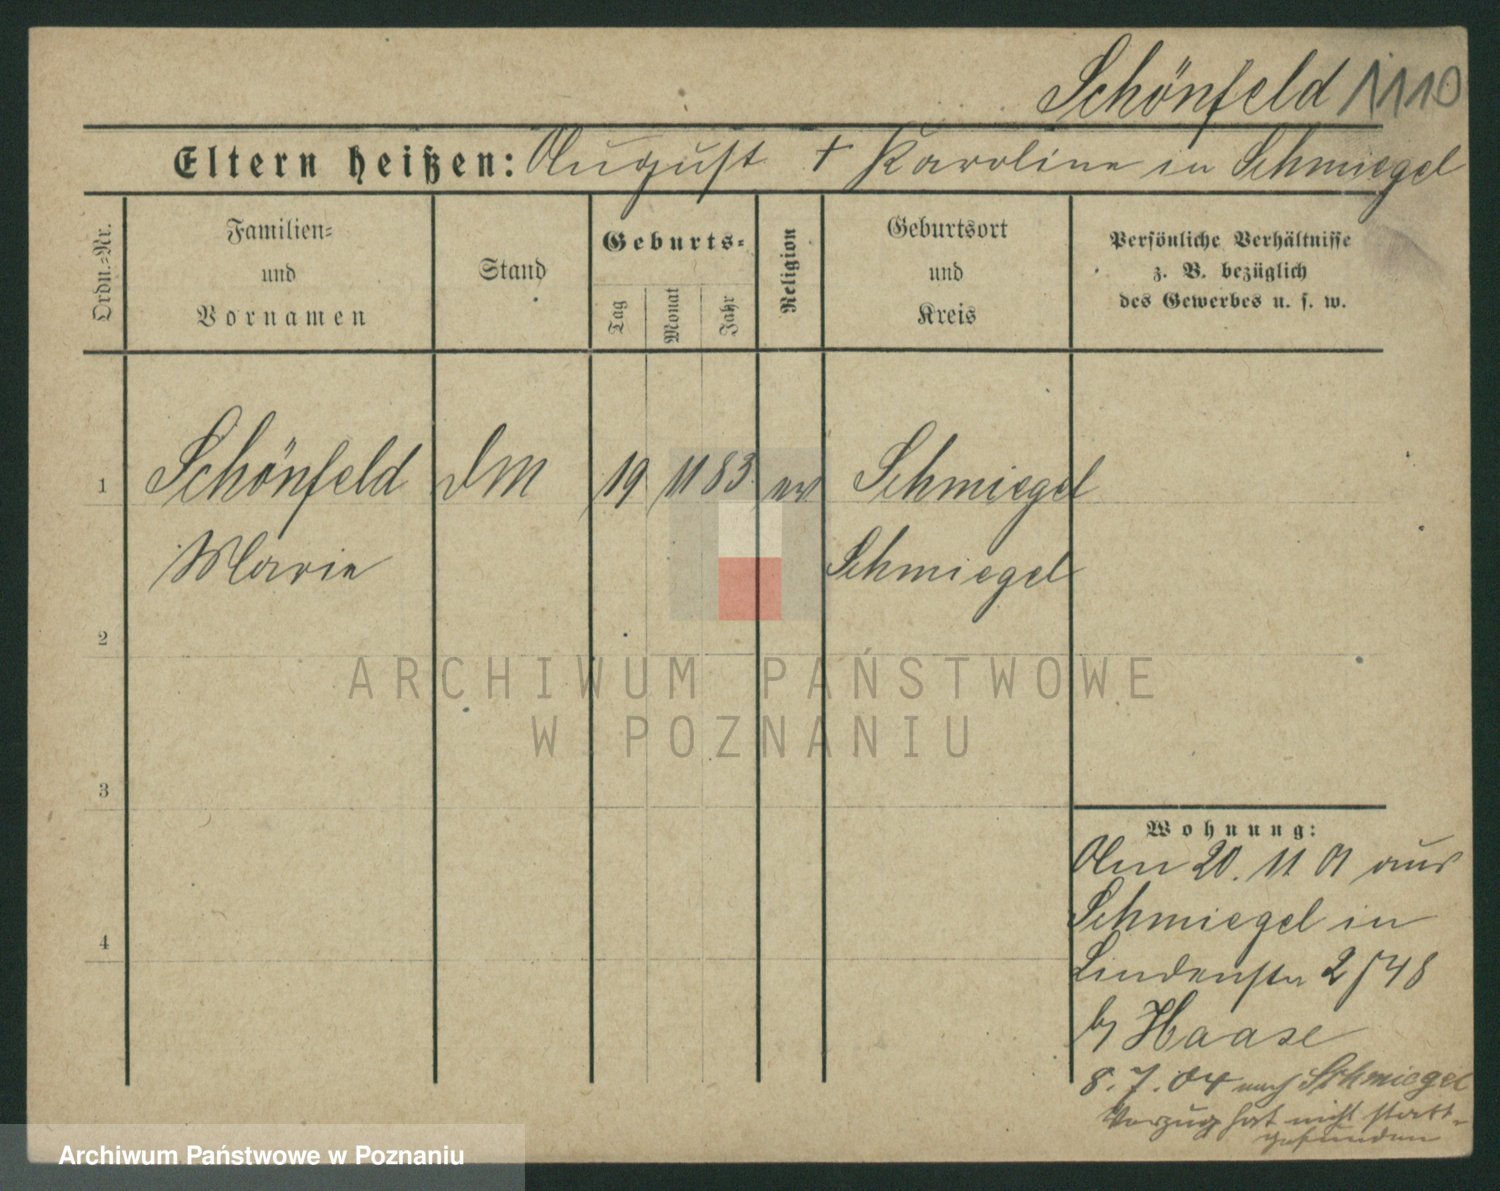 Schönfeld 1110
Eltern heißen: August + Karoline in Schmiegel
Ordn.-Nr.
Familien-
und
Vornamen
Stand
Geburts-
Tag
Monat
Jahr
Religion
Geburtsort
und
Kreis
Persönliche Verhältnisse
z. B. bezüglich
des Gewerbes u. s. w.
1 Schönfeld DM 19 11 83 ev Schmiegel
Marie Schmiegel
2
3
4
Wohnung:
Am 20. 11 01 aus
Schmiegel in
Lindenstr 2/48
by Haase
8. 7. 04 nach Schmiegel
Verzug hat nicht statt-
gefunden
ARCHIWUM PAŃSTWOWE
W POZNANIU
Archiwum Państwowe w Poznaniu